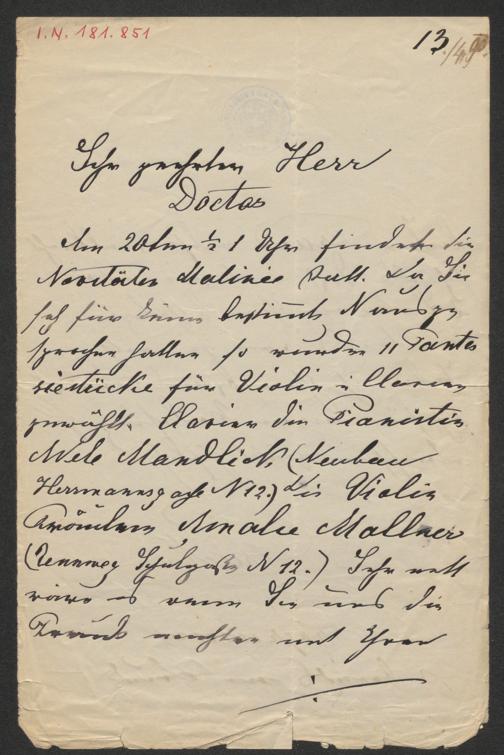 I.N. 181.851
13./4 90.
Sehr geehrter Herr
Doctor
Am 20ten ½ 1 Uhr findet die
Novitäten Matinée statt. Da Sie
sich für keine bestimmte
sprochen hatten so wurden 11 Fantas
siestücke für Violin u Clavier
gewählt. Clavier die Pianistin
Mele Mandlick, (Neubau
Herrmannsgasse N 12.) Die Violin
Fräulein Amalie Mallner
(Rennweg N 12.) Sehr nett
wäre es wenn Sie uns die
Freude machten mit Ihrer